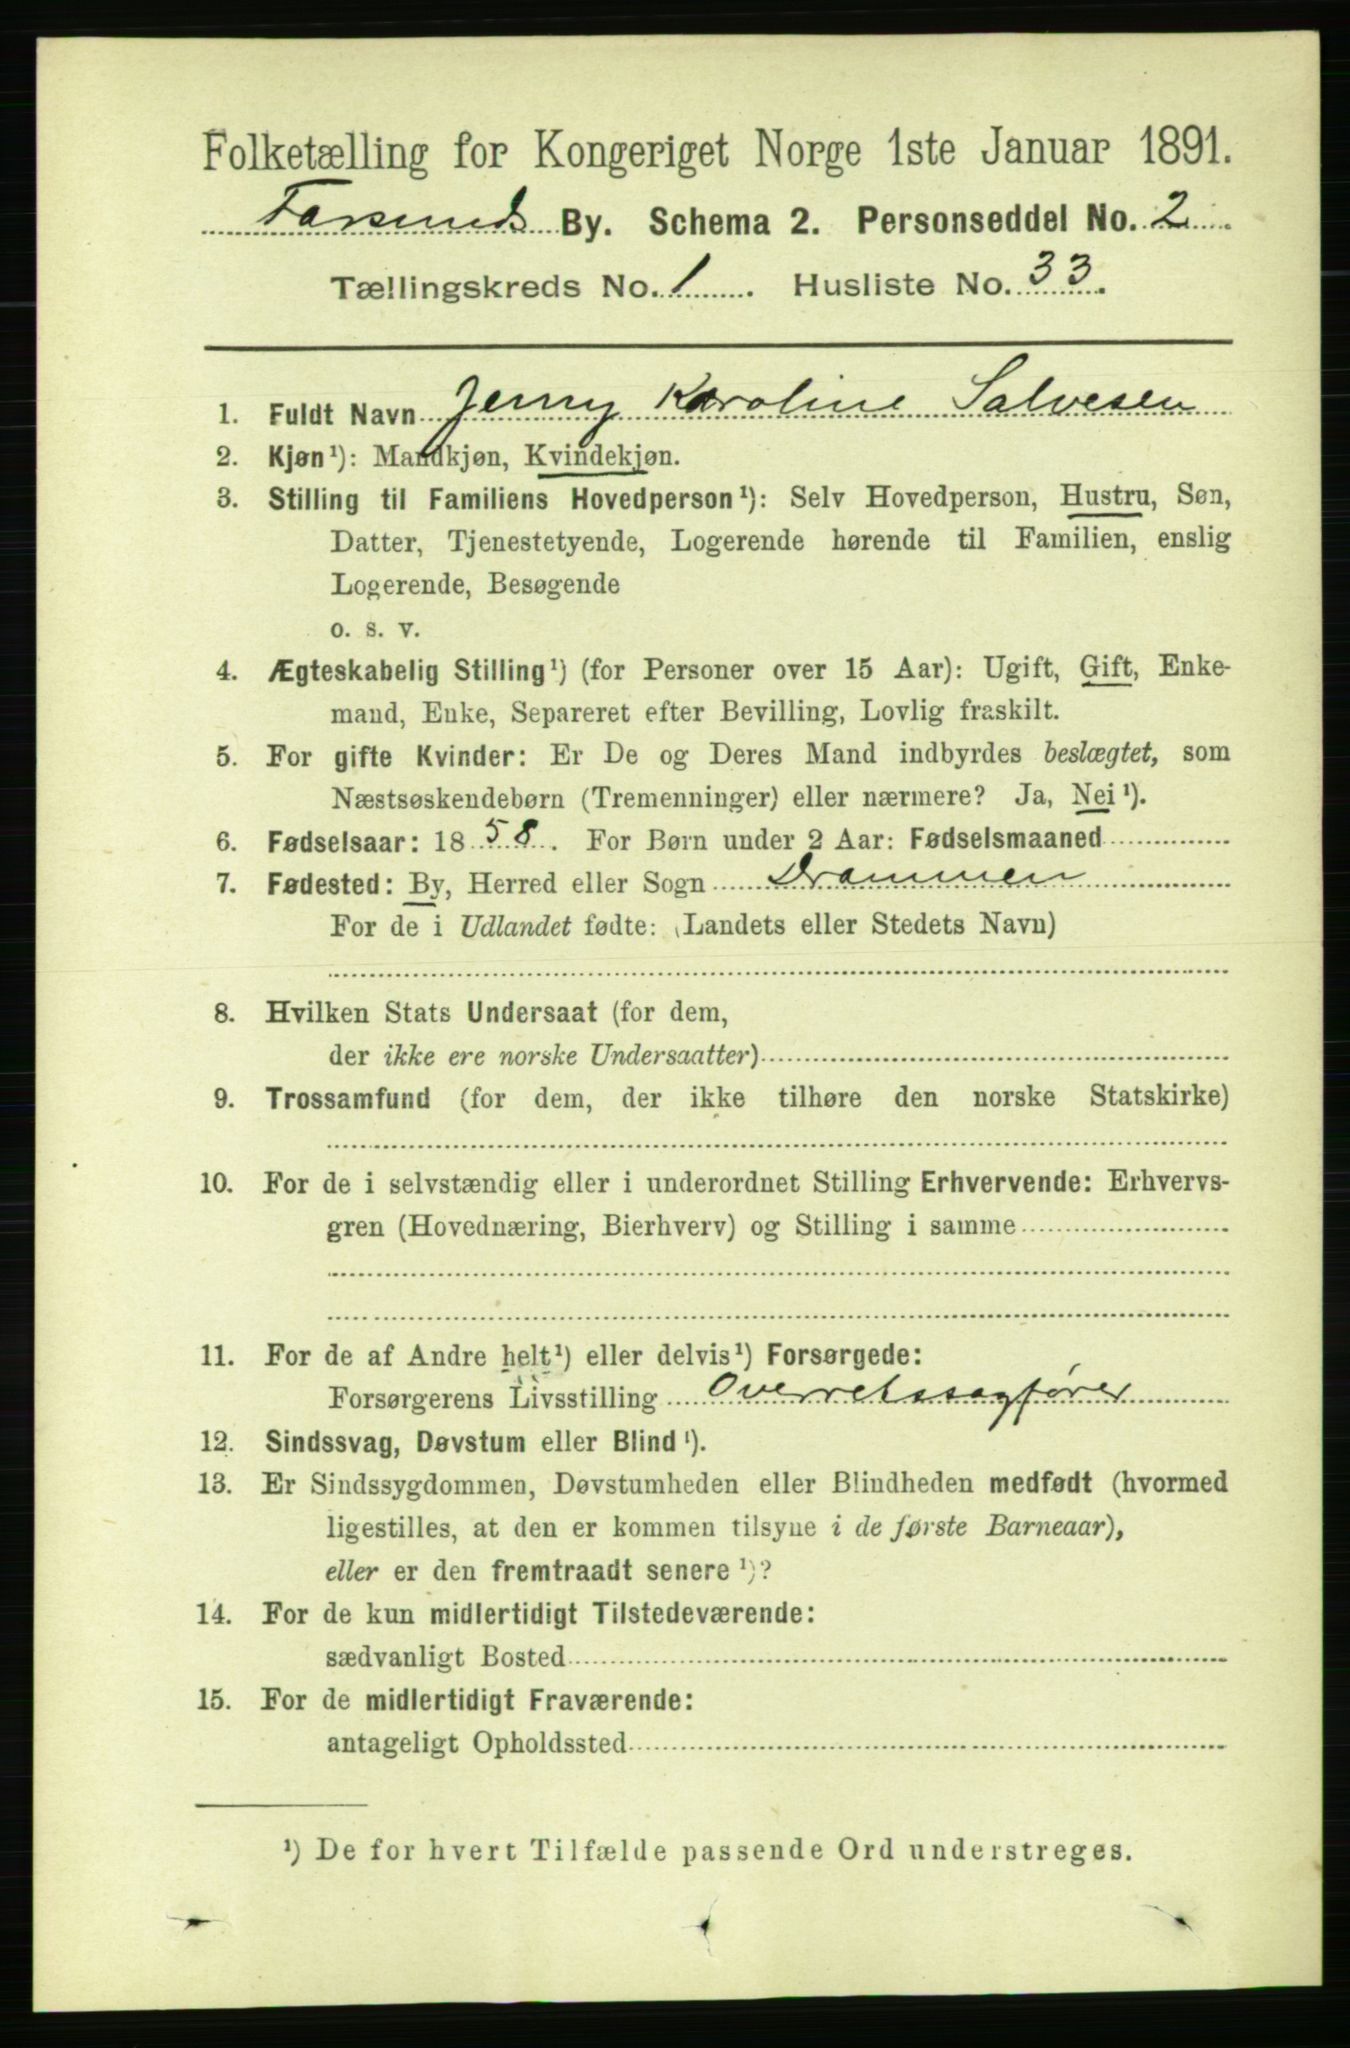 Folketælling for Kongeriget Norge 1ste Januar 1891.
Farsunds By. Schema 2. Personseddel No. 2
Tællingskreds No. 1. Husliste No. 33.
1. Fuldt Navn Jenny Karoline Salvesen
2. Kjøn¹): Mandkjøn, Kvindekjøn.
3. Stilling til Familiens Hovedperson¹): Selv Hovedperson, Hustru, Søn,
Datter, Tjenestetyende, Logerende hørende til Familien, enslig
Logerende, Besøgende
o. s. v.
4. Ægteskabelig Stilling¹) (for Personer over 15 Aar): Ugift, Gift, Enke-
mand, Enke, Separeret efter Bevilling, Lovlig fraskilt.
5. For gifte Kvinder: Er De og Deres Mand indbyrdes beslægtet, som
Næstsøskendebørn (Tremenninger) eller nærmere? Ja, Nei¹).
6. Fødselsaar: 1858. For Børn under 2 Aar: Fødselsmaaned
7. Fødested: By, Herred eller Sogn Drammen
For de i Udlandet fødte: (Landets eller Stedets Navn)
8. Hvilken Stats Undersaat (for dem,
der ikke ere norske Undersaatter)
9. Trossamfund (for dem, der ikke tilhøre den norske Statskirke)
10. For de i selvstændig eller i underordnet Stilling Erhvervende: Erhvervs-
gren (Hovednæring, Bierhverv) og Stilling i samme
11. For de af Andre helt¹) eller delvis¹) Forsørgede:
Forsørgerens Livsstilling Overretssagfører
12. Sindssvag, Døvstum eller Blind¹).
13. Er Sindssygdommen, Døvstumheden eller Blindheden medfødt (hvormed
ligestilles, at den er kommen tilsyne i de første Barneaar),
eller er den fremtraadt senere¹)?
14. For de kun midlertidigt Tilstedeværende:
sædvanligt Bosted
15. For de midlertidigt Fraværende:
antageligt Opholdssted
¹) De for hvert Tilfælde passende Ord understreges.